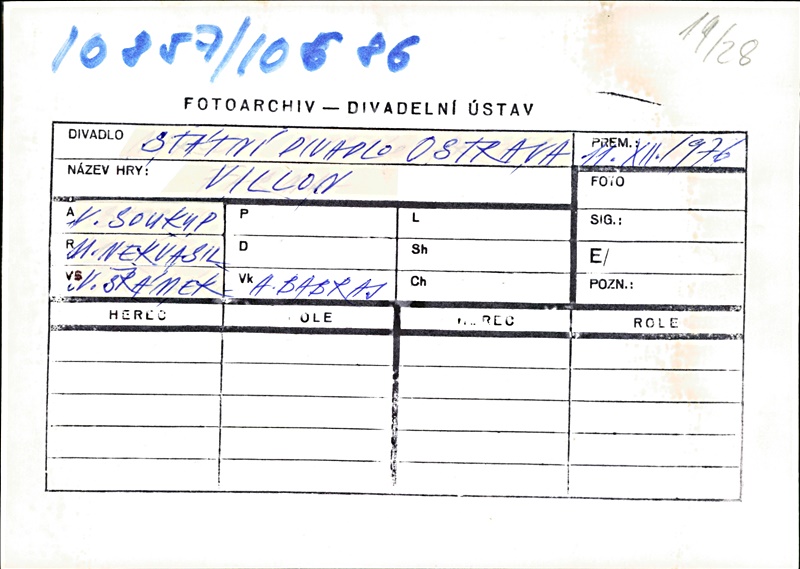 10857/10586
19/28
FOTOARCHIV — DIVADELNÍ ÚSTAV
DIVADLO STÁTNÍ DIVADLO OSTRAVA PREM.: 11. XII. 1976
NÁZEV HRY: VILLON FOTO
A V. SOUKUP P L SIG.:
R M. NEKVASIL D Sh E/
VS V. ŠRÁMEK Vk A. BABRAJ Ch POZN.:
HEREC ROLE HEREC ROLE